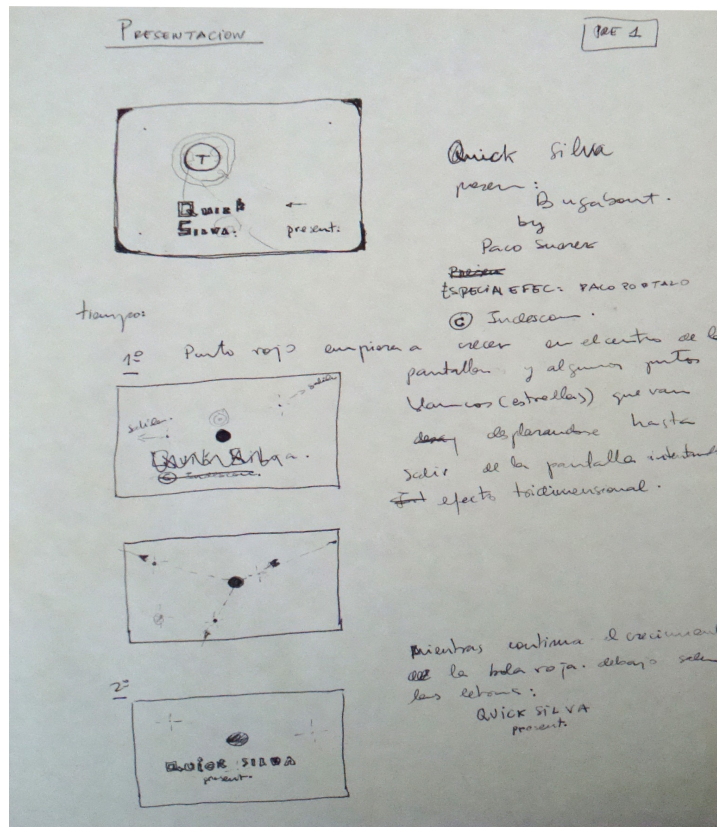 PRESENTACION
PRE 1
T
QUICK
SILVA.
present.
Quick Silva
presen:
Bugaboout.
by
Paco Suarez
ESPECIAL EFEC: PACO PORTALO
© Indescom.
tiempos
1º Punto rojo empieza a crecer en el centro de la
pantalla y algunos puntos
blancos (estrellas) que van
desplazandose hasta
salir de la pantalla intentando
efecto tridimensional.
salida.
salida
Quick Silva.
© Indescom.
Mientras continua el crecimiento
de la bola roja. debajo salen
las letras:
QUICK SILVA
present.
2º
QUICK SILVA
present.